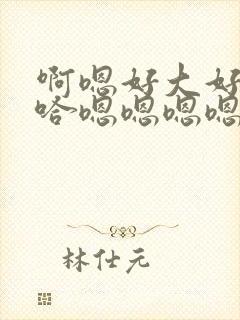 啊嗯好大好
哈嗯嗯嗯嗯
林仕元